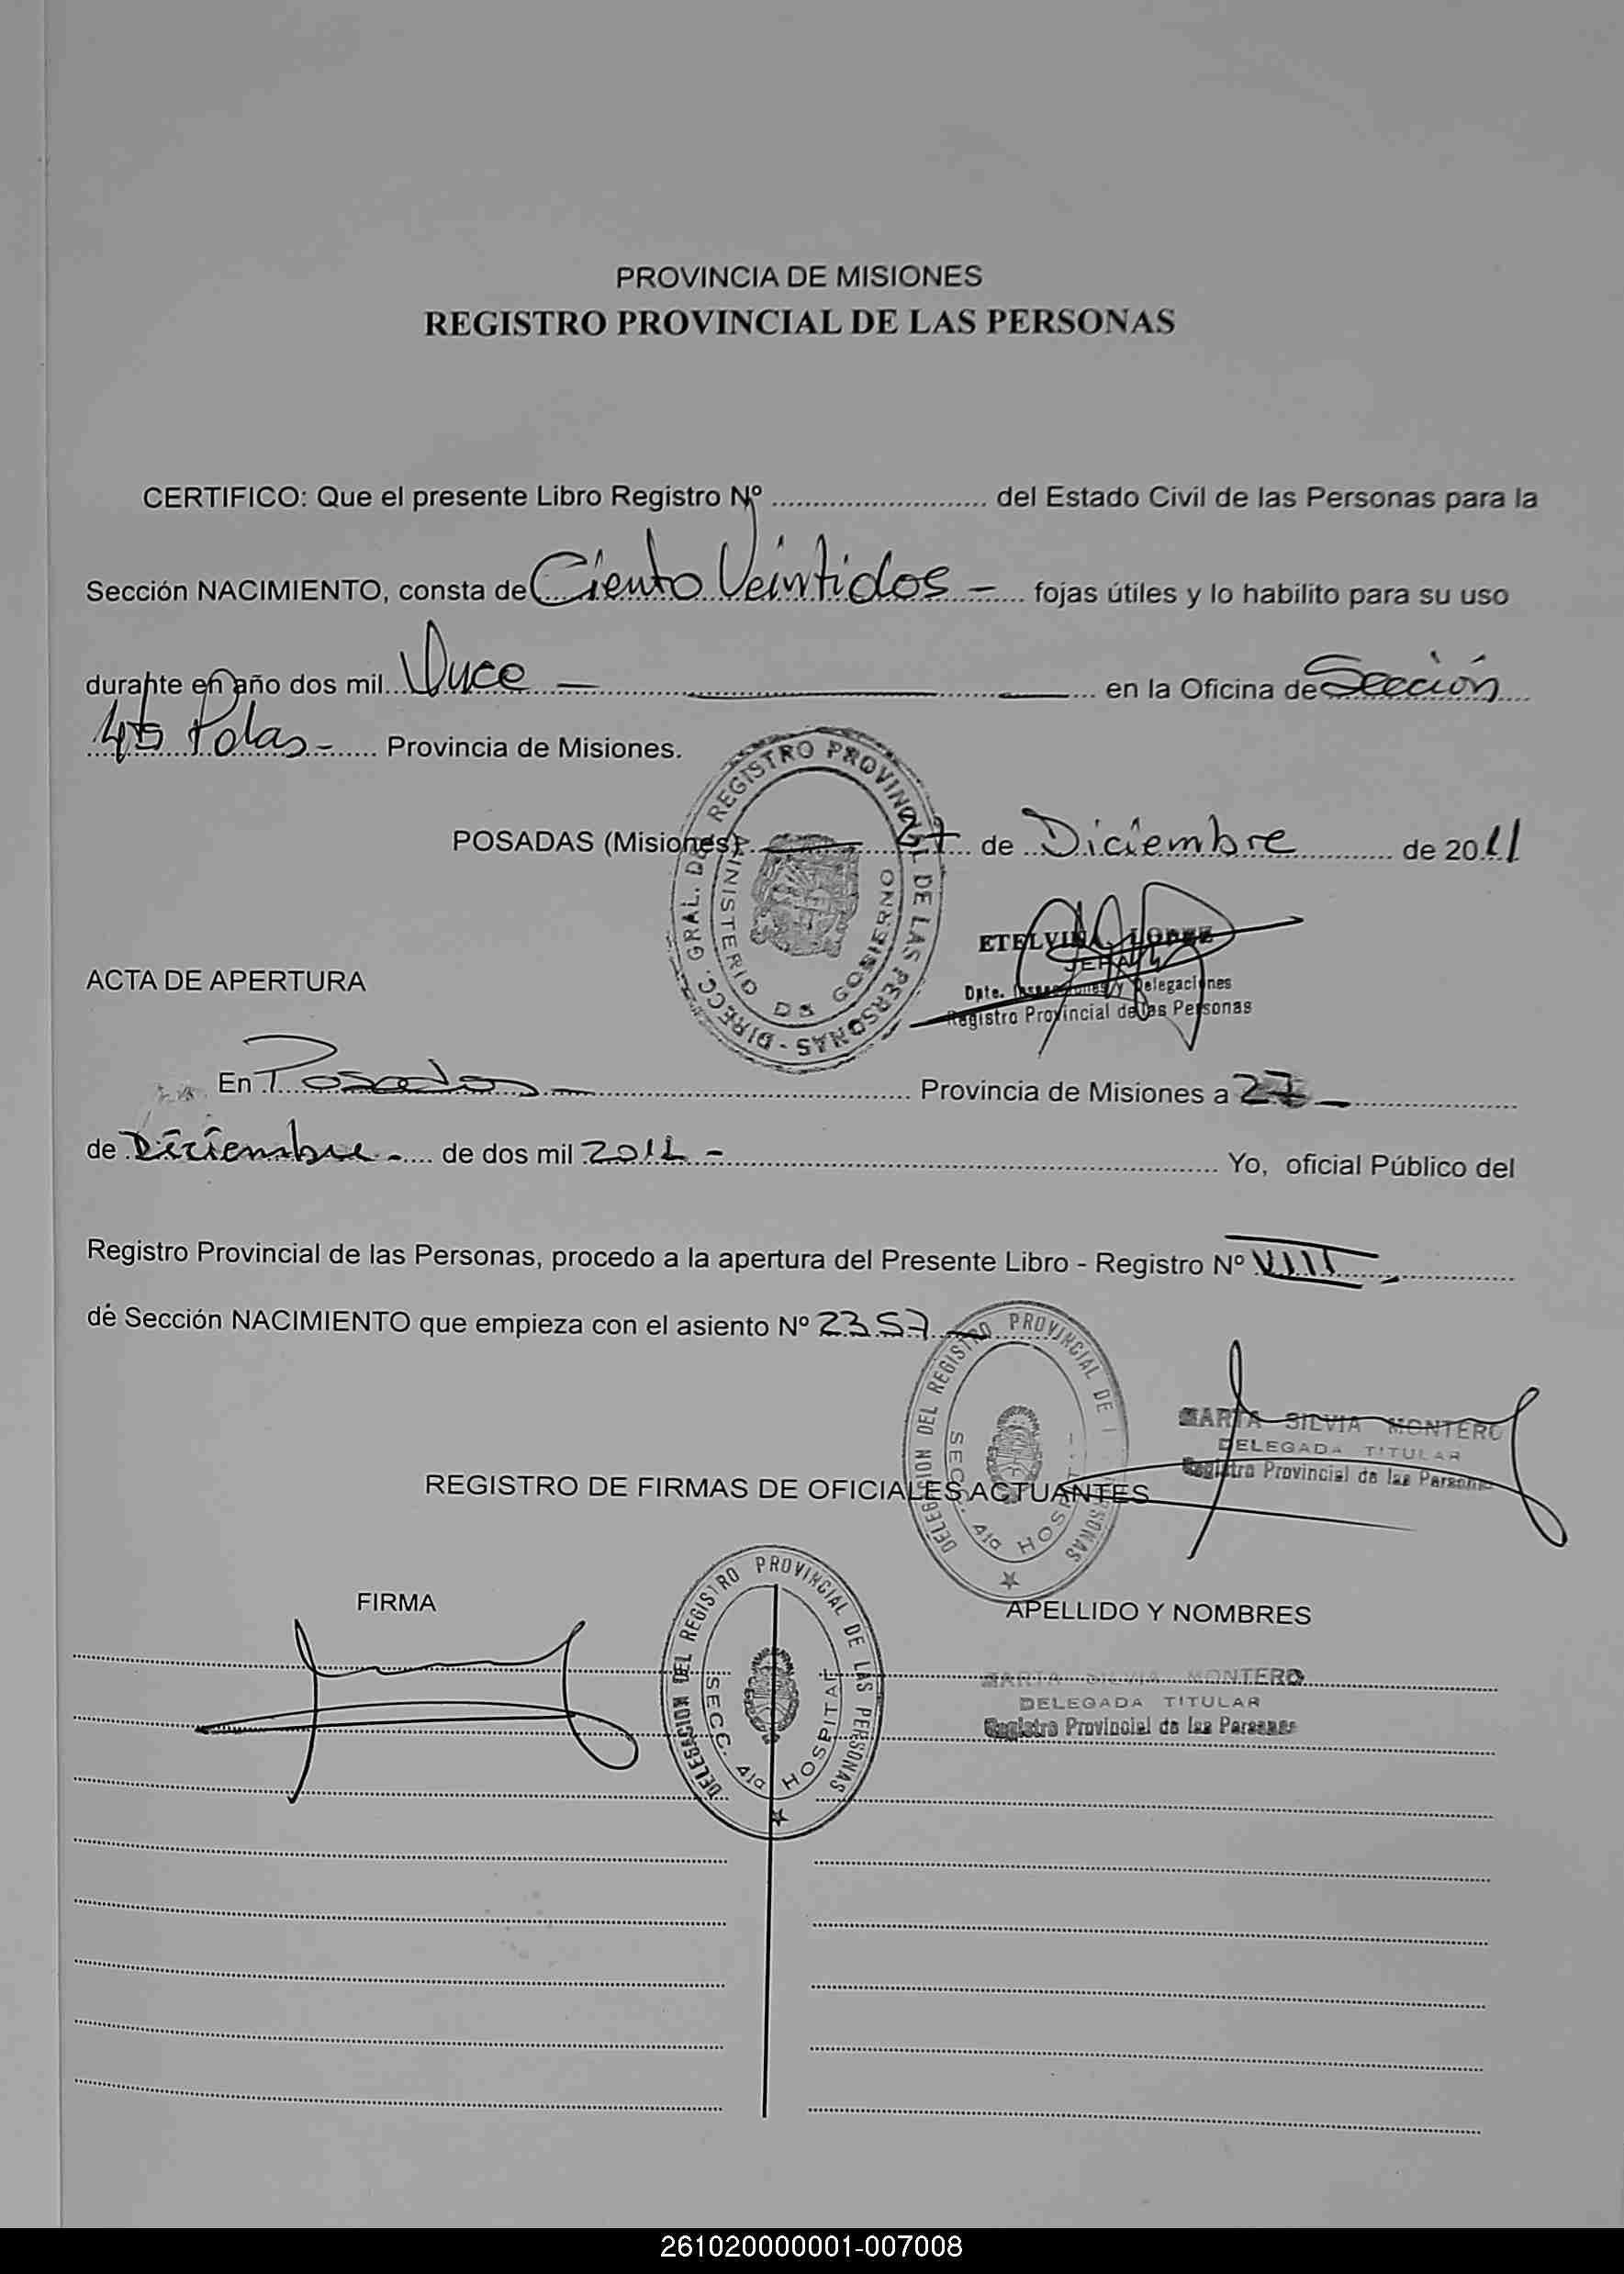 PROVINCIA DE MISIONES
REGISTRO PROVINCIAL DE LAS PERSONAS
CERTIFICO: Que el presente Libro Registro Nº .......................... del Estado Civil de las Personas para la
Sección NACIMIENTO, consta de Ciento Veintidos - fojas útiles y lo habilito para su uso
durante en año dos mil Once — en la Oficina de Sección
4ta Pdas - Provincia de Misiones.
DIRECC. GRAL. DEL REGISTRO PROVINCIAL DE LAS PERSONAS -
MINISTERIO DE GOBIERNO
POSADAS (Misiones) 27 de Diciembre de 2011
ETELVINA LOPEZ
JEFA
Dpto. Inspecciones y Delegaciones
Registro Provincial de las Personas
ACTA DE APERTURA
En Posadas - Provincia de Misiones a 27 -
de Diciembre - de dos mil 2011 - Yo, oficial Público del
Registro Provincial de las Personas, procedo a la apertura del Presente Libro - Registro Nº VIII -
de Sección NACIMIENTO que empieza con el asiento Nº 2357 -
DELEGACION DEL REGISTRO PROVINCIAL DE PERSONAS
SECC. 4ta HOSPITAL
MARTA SILVIA MONTERO
DELEGADA TITULAR
Registro Provincial de las Personas
REGISTRO DE FIRMAS DE OFICIALES ACTUANTES
FIRMA
APELLIDO Y NOMBRES
DELEGACION DEL REGISTRO PROVINCIAL DE LAS PERSONAS
SECC. 4ta HOSPITAL
MARTA SILVIA MONTERO
DELEGADA TITULAR
Registro Provincial de las Personas
261020000001-007008